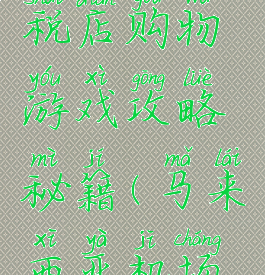 shuì diàn gòu wù
税店购物
yóu xì gōng lüè
游戏攻略
mì jí mǎ lái
秘籍(马来
xī yà jī chǎng
西亚机场